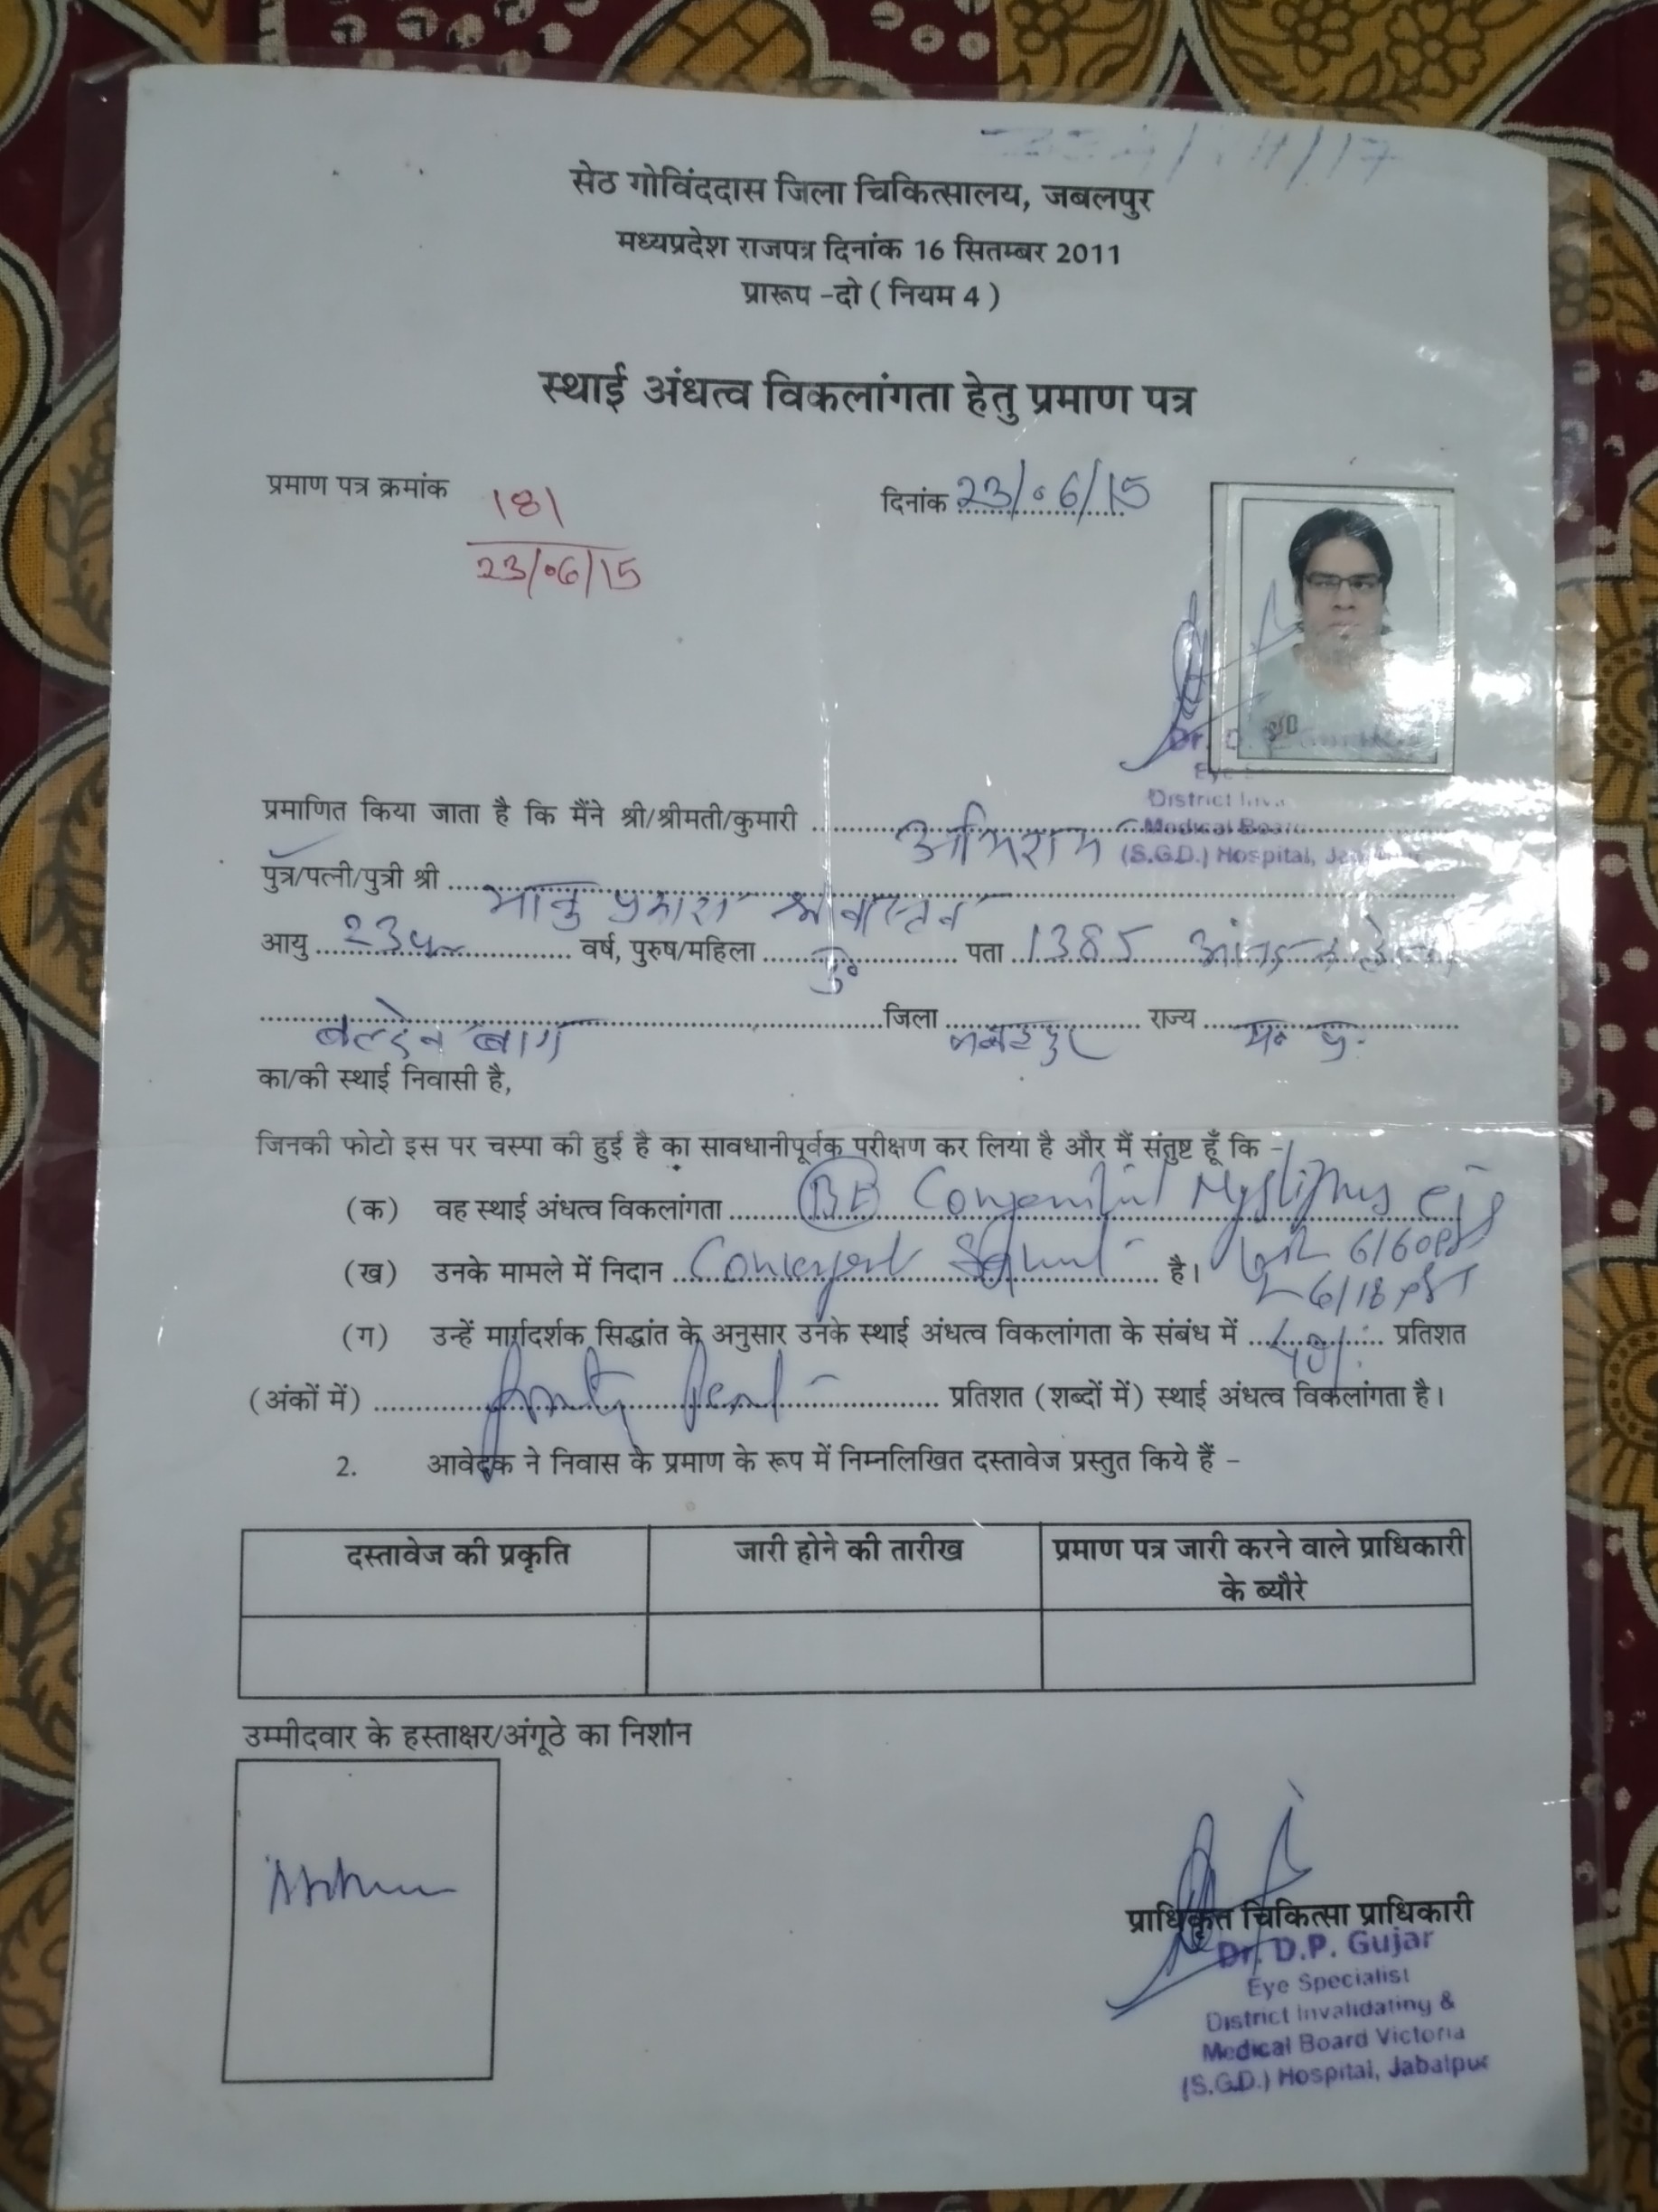 /17
सेठ गोविंददास जिला चिकित्सालय, जबलपुर
मध्यप्रदेश राजपत्र दिनांक 16 सितम्बर 2011
प्रारूप -दो ( नियम 4 )
स्थाई अंधत्व विकलांगता हेतु प्रमाण पत्र
प्रमाण पत्र क्रमांक 181
23/06/15
दिनांक 23/06/15
Dr. D.
Eye
District
Medical Board
(S.G.D.) Hospital,
प्रमाणित किया जाता है कि मैंने श्री/श्रीमती/कुमारी अभिराम
पुत्र/पत्नी/पुत्री श्री भानु प्रकाश श्रीवास्तव
आयु 23 वर्ष, पुरुष/महिला पु० पता 1385
बल्देव बाग जिला जबलपुर राज्य म० प्र०
का/की स्थाई निवासी है,
जिनकी फोटो इस पर चस्पा की हुई है का सावधानीपूर्वक परीक्षण कर लिया है और मैं संतुष्ट हूँ कि -
(क) वह स्थाई अंधत्व विकलांगता BE Congenital
(ख) उनके मामले में निदान Convergent Squint है। 6/60
6/18
(ग) उन्हें मार्गदर्शक सिद्धांत के अनुसार उनके स्थाई अंधत्व विकलांगता के संबंध में 40% प्रतिशत
(अंकों में) प्रतिशत (शब्दों में) स्थाई अंधत्व विकलांगता है।
2. आवेदक ने निवास के प्रमाण के रूप में निम्नलिखित दस्तावेज प्रस्तुत किये हैं -
दस्तावेज की प्रकृति जारी होने की तारीख प्रमाण पत्र जारी करने वाले प्राधिकारी
के ब्यौरे
उम्मीदवार के हस्ताक्षर/अंगूठे का निशान
प्राधिकृत चिकित्सा प्राधिकारी
Dr. D.P. Gujar
Eye Specialist
District Invalidating &
Medical Board Victoria
(S.G.D.) Hospital, Jabalpur